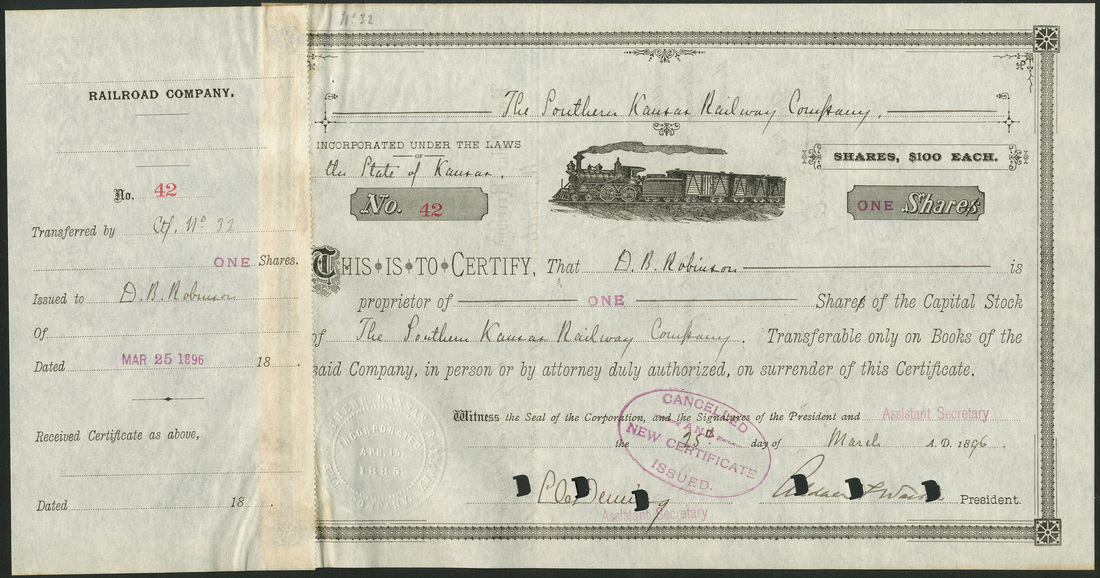 Nº 32
RAILROAD COMPANY.
No. 42
Transferred by Ctf. Nº 32
ONE Shares.
Issued to D. B. Robinson
Of
Dated MAR 25 1896 18
Received Certificate as above,
Dated 18
The Southern Kansas Railway Company.
INCORPORATED UNDER THE LAWS
OF
the State of Kansas.
SHARES, $100 EACH.
No. 42
ONE Shares
THIS IS TO CERTIFY, That D. B. Robinson is
proprietor of ONE Shares of the Capital Stock
of The Southern Kansas Railway Company. Transferable only on Books of the
said Company, in person or by attorney duly authorized, on surrender of this Certificate.
Witness the Seal of the Corporation, and the Signatures of the President and Assistant Secretary
the 25th day of March A. D. 1896.
CANCELLED
AND
NEW CERTIFICATE
ISSUED.
INCORPORATED
APR. 15,
1885.
Deming
Assistant Secretary
President.